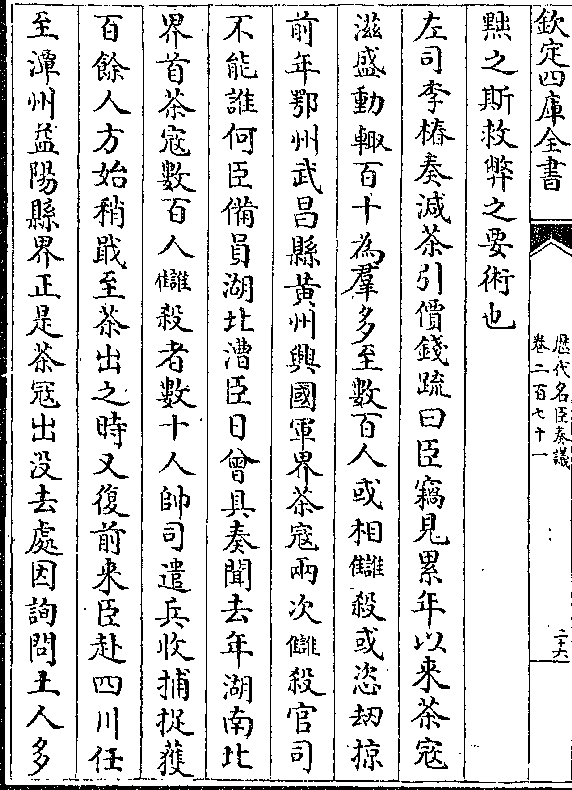 欽定四庫全書
歷代名臣奏議
卷二百七十一
二十六
㸃之斯救弊之要術也
左司李椿奏減茶引價錢疏曰臣竊見累年以来茶宼
滋盛動輙百十為羣多至數百人或相讎殺或恣刼掠
前年鄂州武昌縣黄州興國軍界茶宼兩次讎殺官司
不能誰何臣備員湖北漕臣日曾具奏聞去年湖南北
界首茶宼數百人讎殺者數十人帥司遣兵收捕捉獲
百餘人方始稍戢至茶出之時又復前来臣赴四川任
至潭州益陽縣界正是茶宼出没去處因詢問土人多